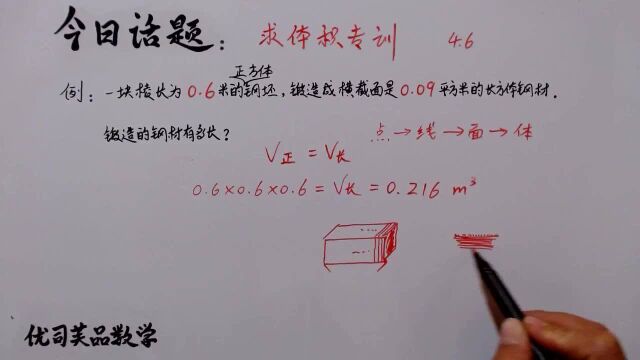 今日话题：求体积专训 4.6
正方体
例：一块棱长为0.6米的钢坯，锻造成横截面是0.09平方米的长方体钢材.
锻造的钢材有多长？
点→线→面→体
V正=V长
0.6×0.6×0.6=V长=0.216 m³
优司芙品数学